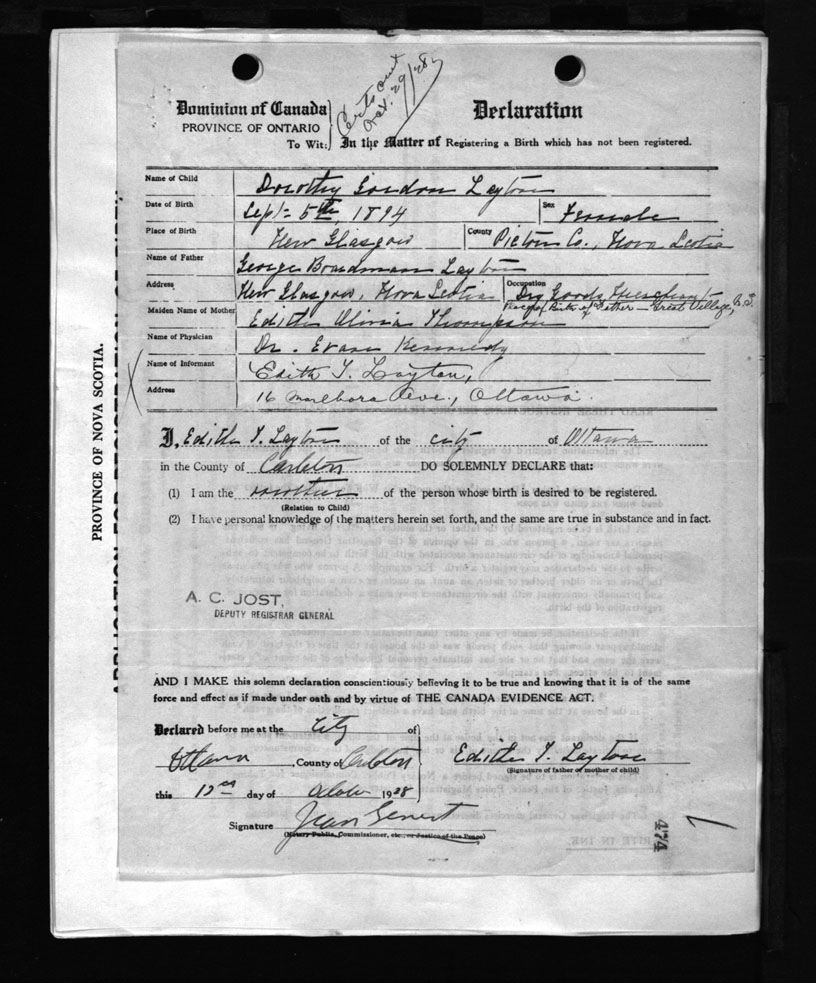 Certs out
Oct. 29/28
Dominion of Canada
PROVINCE OF ONTARIO
To Wit:
Declaration
In the Matter of Registering a Birth which has not been registered.
Name of Child Dorothy Gordon Layton
Date of Birth Sept 5th, 1894 Sex Female
Place of Birth New Glasgow County Pictou Co., Nova Scotia
Name of Father George Boardman Layton
Address New Glasgow, Nova Scotia Occupation Dry Goods Merchant
Place of Birth of Father - Great Village, N.S.
Maiden Name of Mother Edith Olivia Thompson
Name of Physician Dr. Evan Kennedy
Name of Informant Edith T. Layton,
Address 16 Marlboro Ave., Ottawa.
I, Edith T. Layton of the city of Ottawa
in the County of Carleton DO SOLEMNLY DECLARE that:
(1) I am the mother of the person whose birth is desired to be registered.
(Relation to Child)
(2) I have personal knowledge of the matters herein set forth, and the same are true in substance and in fact.
A. C. JOST,
DEPUTY REGISTRAR GENERAL
AND I MAKE this solemn declaration conscientiously believing it to be true and knowing that it is of the same
force and effect as if made under oath and by virtue of THE CANADA EVIDENCE ACT.
Declared before me at the City of
Ottawa, County of Carleton
Edith T. Layton
(Signature of father or mother of child)
this day of October 1928
Signature Jean Genest
(Notary Public, Commissioner, etc., or Justice of the Peace)
474
PROVINCE OF NOVA SCOTIA.